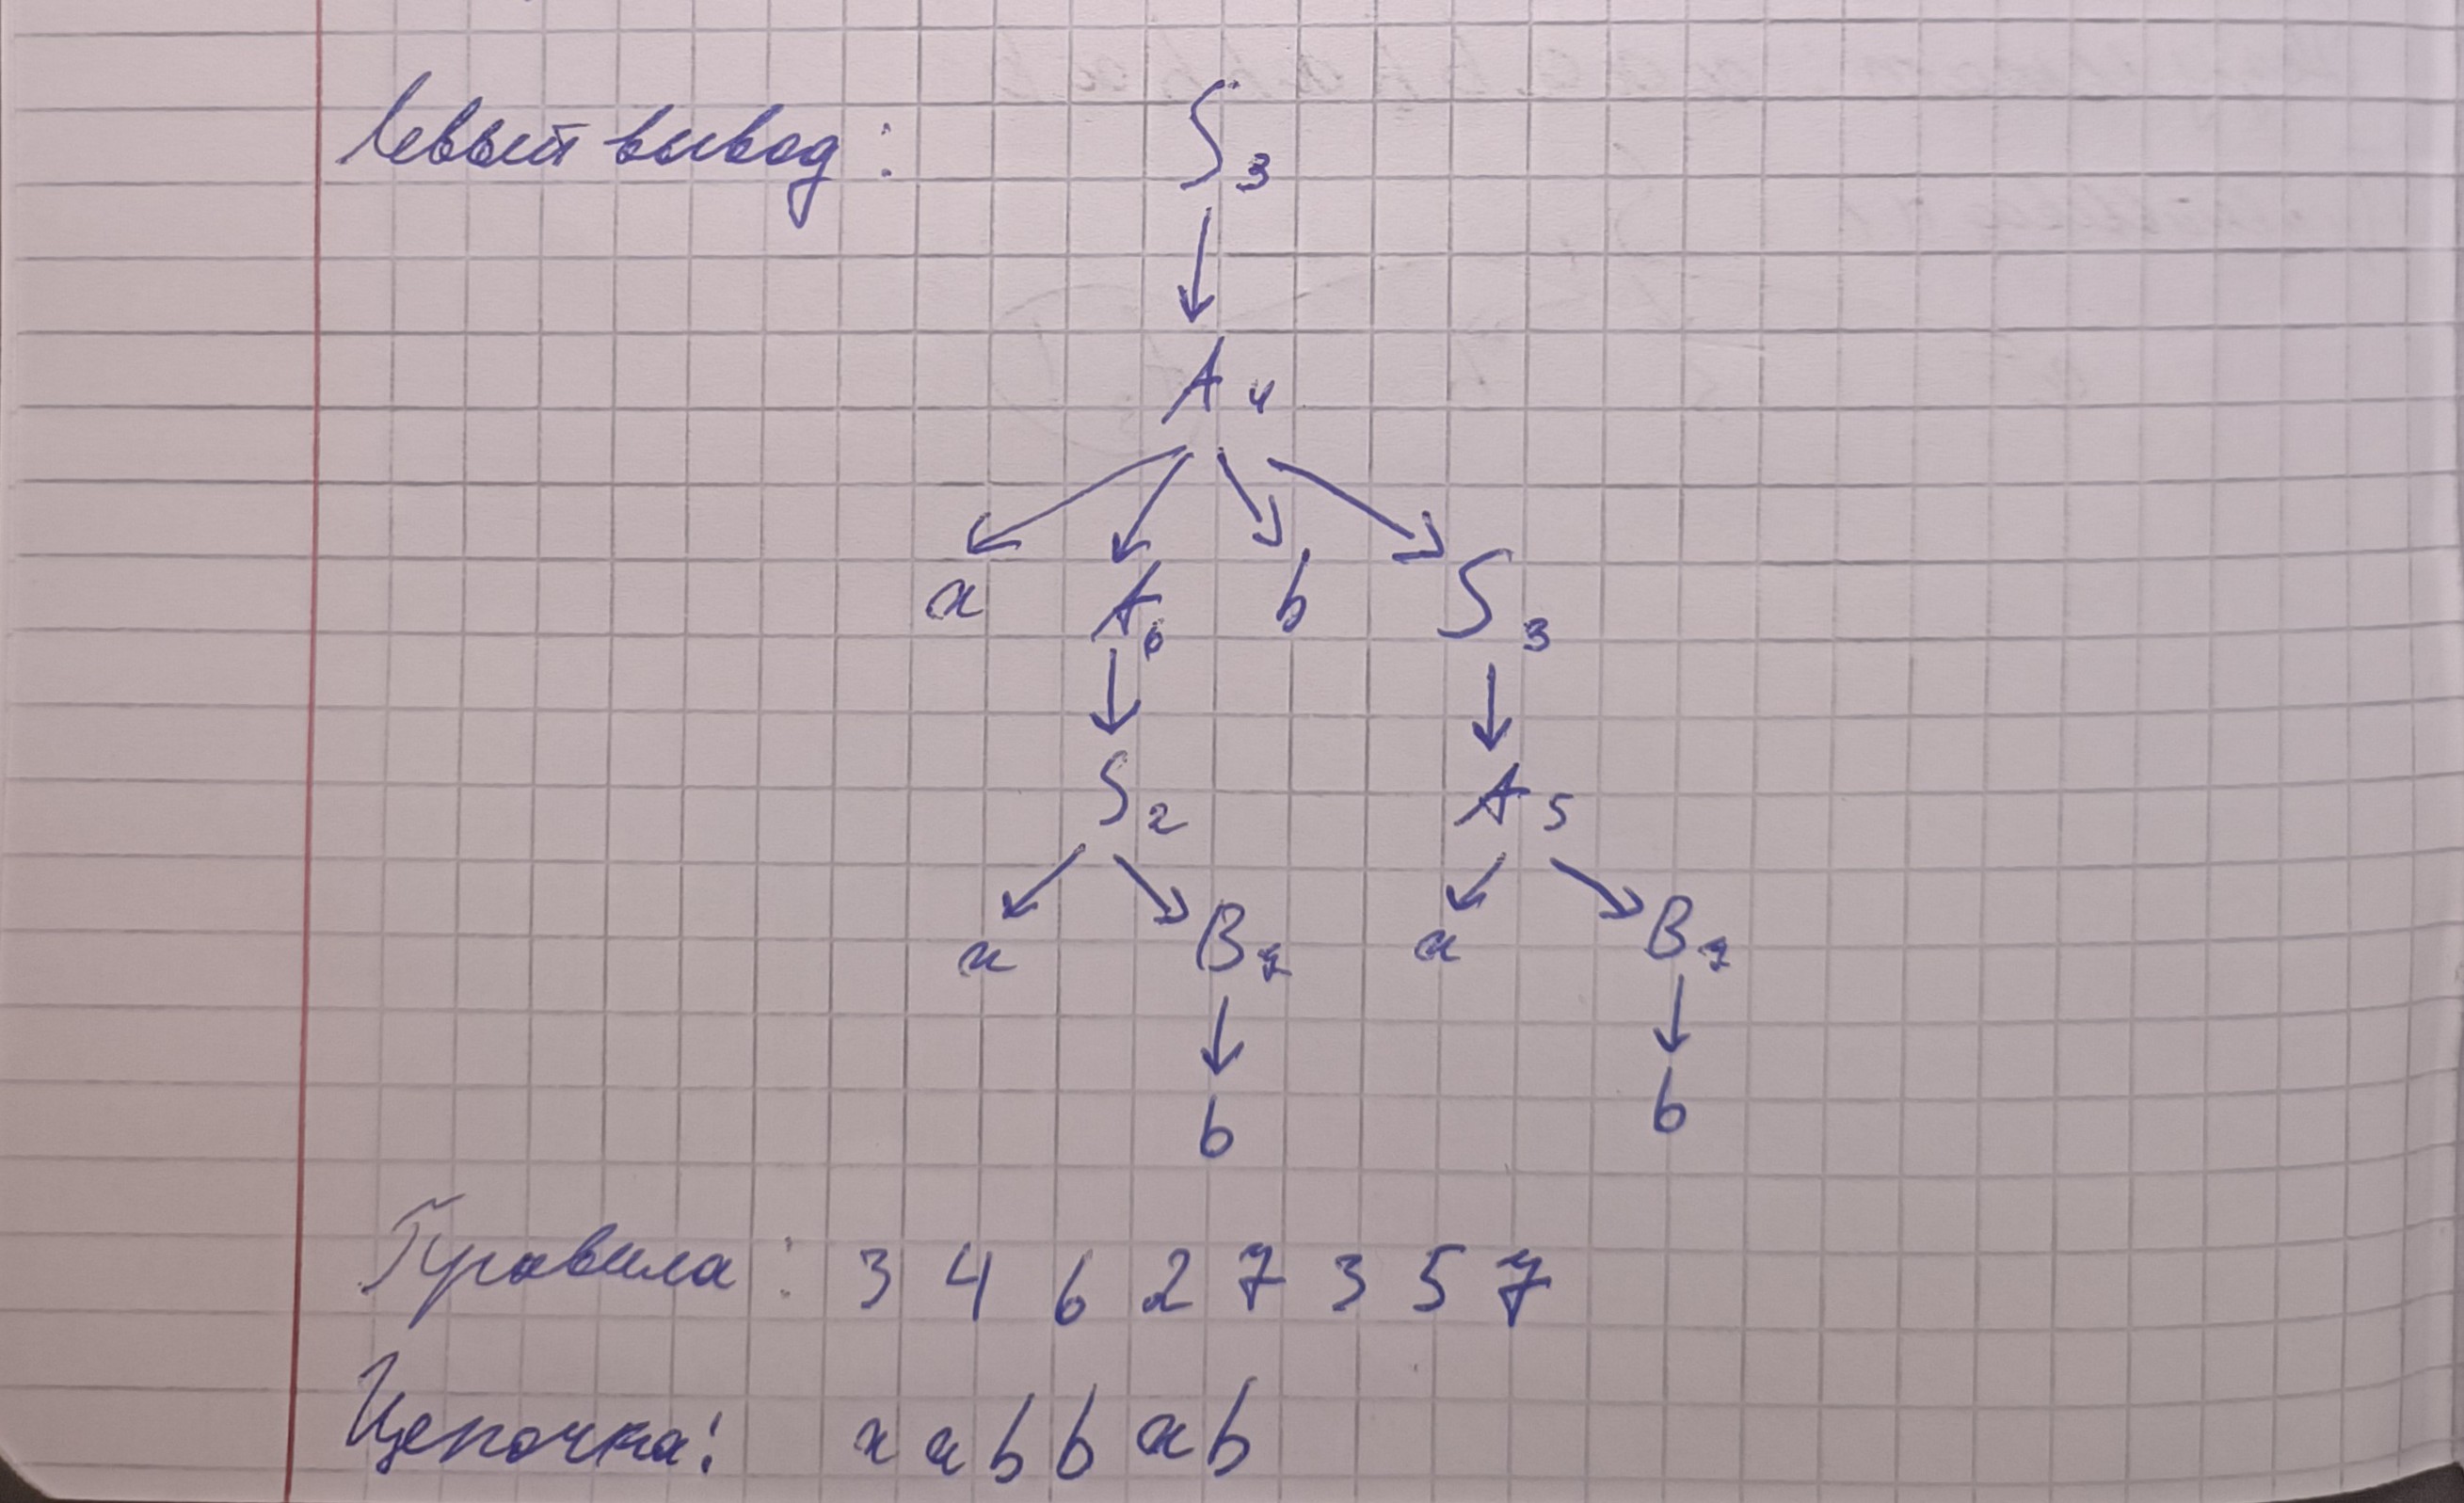 Левый вывод: S3
A4
a A6 b S3
S2 A5
a B7 a B7
b b
Правила: 3 4 6 2 7 3 5 7
Цепочка: a a b b a b